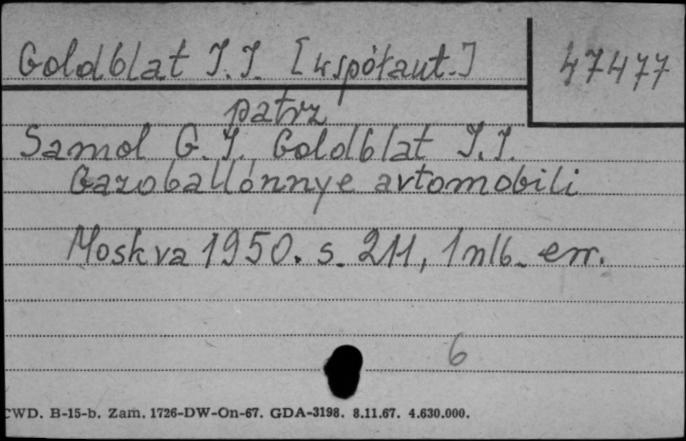 Goldblat I.I. [współaut.]
47477
patrz
Samol G.I. Goldblat I.I.
Gazoballonnye avtomobili
Moskva 1950. s. 211, 1 nlb. err.
6
CWD. B-15-b. Zam. 1726-DW-On-67. GDA-3198. 8.11.67. 4.630.000.